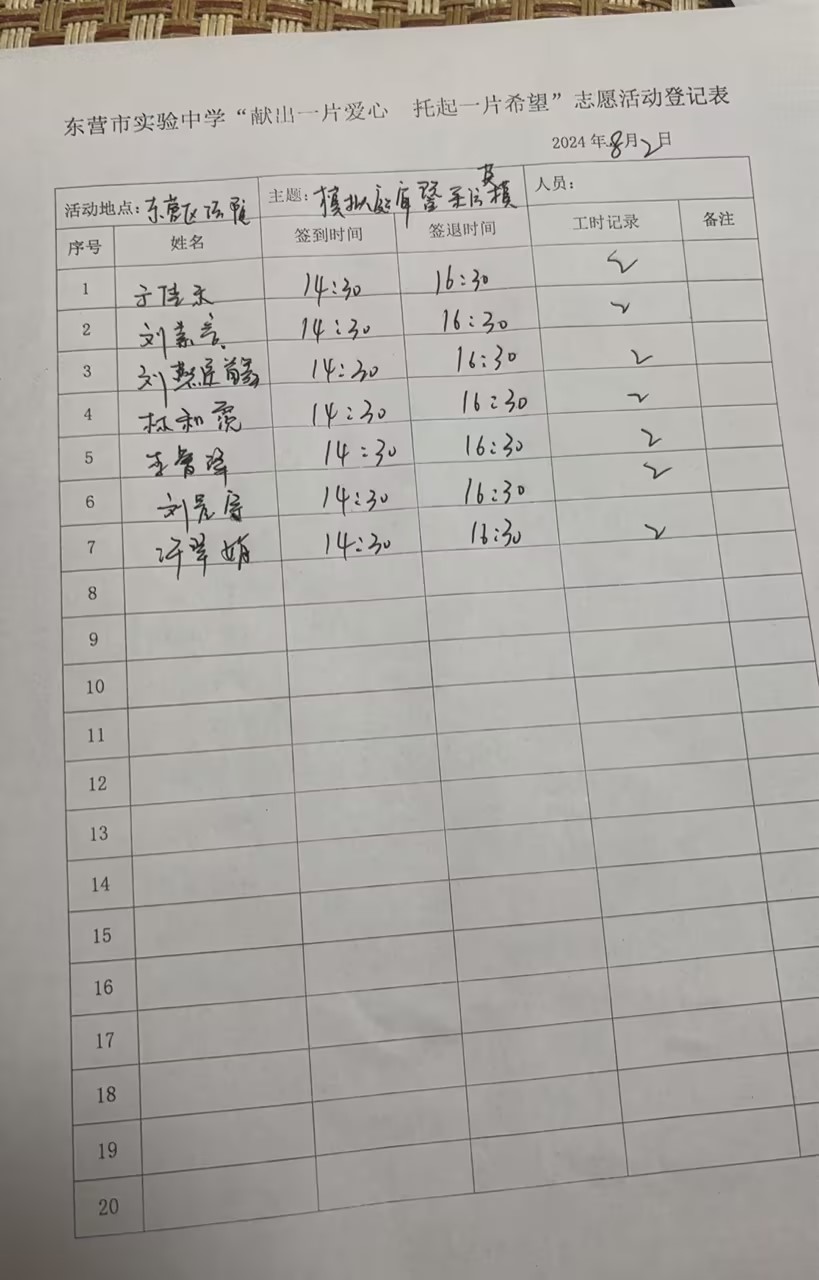 东营市实验中学“献出一片爱心 托起一片希望”志愿活动登记表
2024年8月2日
活动地点：东营区法院 主题：模拟庭审 人员：
序号 姓名 签到时间 签退时间 工时记录 备注
1 于佳禾 14:30 16:30 2
2 刘 14:30 16:30 2
3 刘 14:30 16:30 2
4 林和霓 14:30 16:30 2
5 14:30 16:30 2
6 刘 14:30 16:30 2
7 翠娟 14:30 16:30 2
8
9
10
11
12
13
14
15
16
17
18
19
20